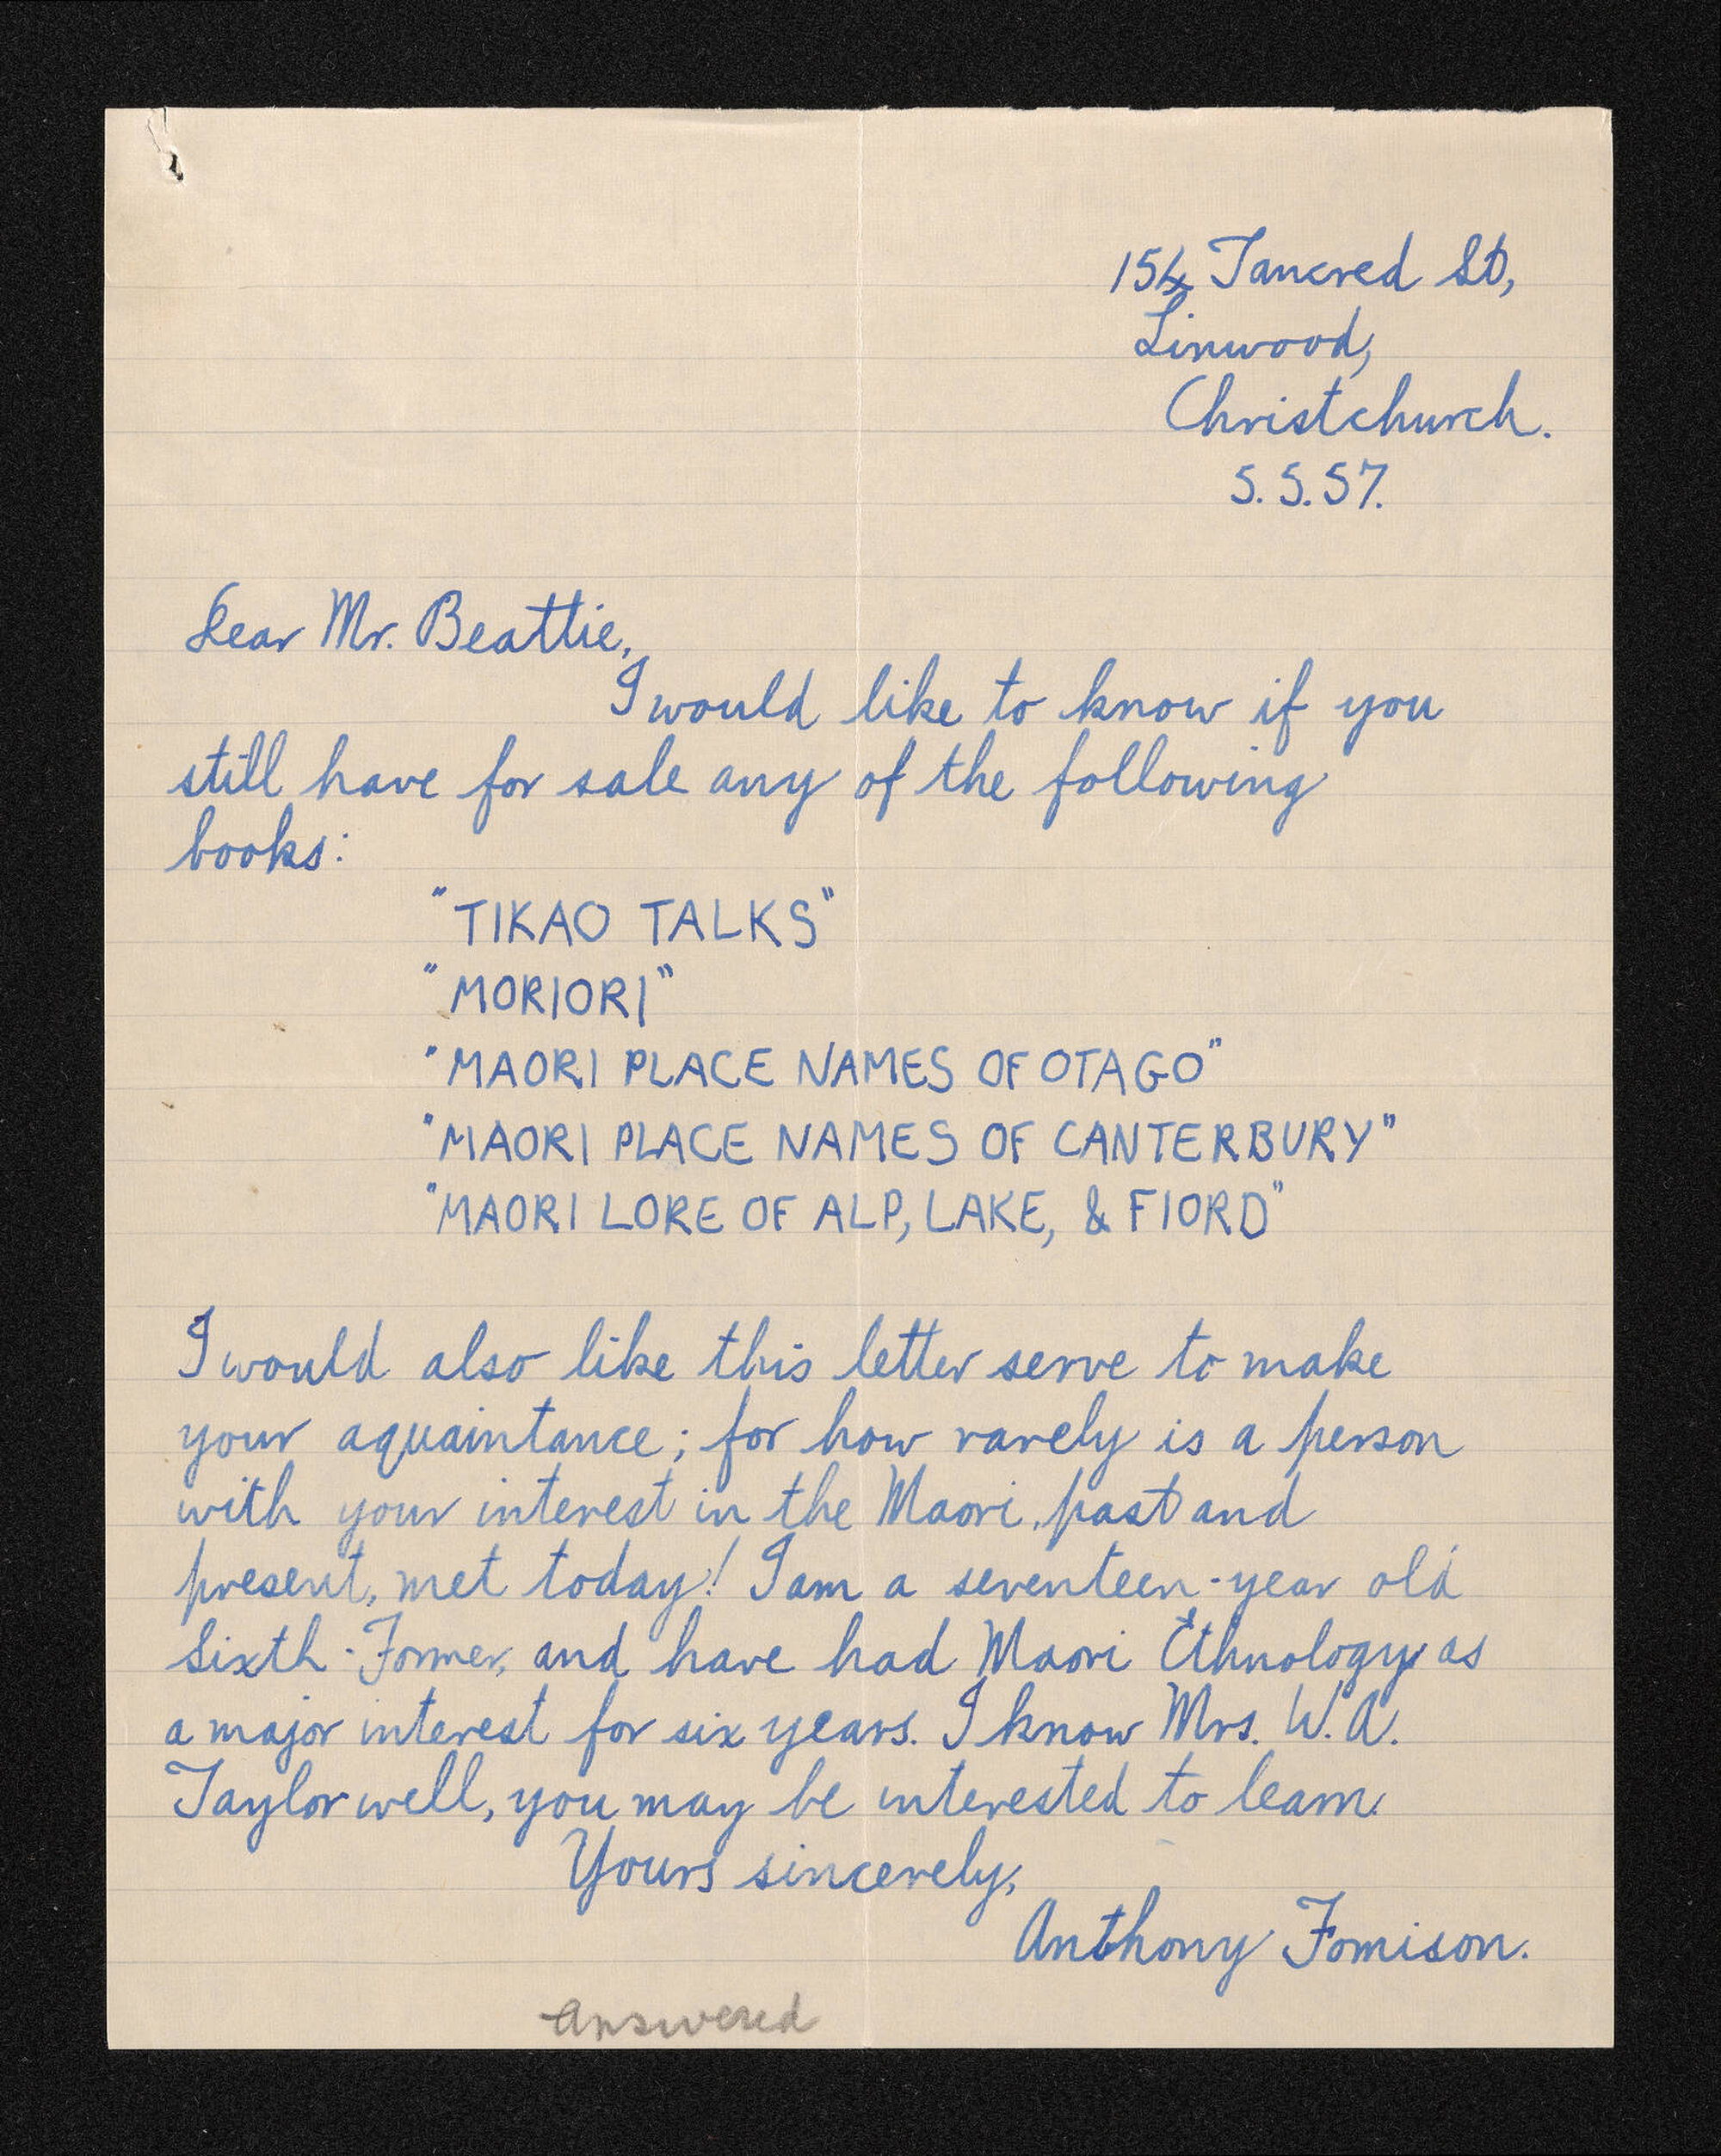 154 Tancred St,
Linwood,
Christchurch.
5.5.57.
Dear Mr. Beattie,
I would like to know if you
still have for sale any of the following
books:
"TIKAO TALKS"
"MORIORI"
"MAORI PLACE NAMES OF OTAGO"
"MAORI PLACE NAMES OF CANTERBURY"
"MAORI LORE OF ALP, LAKE, & FIORD"
I would also like this letter serve to make
your aquaintance; for how rarely is a person
with your interest in the Maori, past and
present, met today! I am a seventeen-year old
Sixth-Former, and have had Maori Ethnology as
a major interest for six years. I know Mrs. W.A.
Taylor well, you may be interested to learn.
Yours sincerely,
Anthony Fomison.
Answered